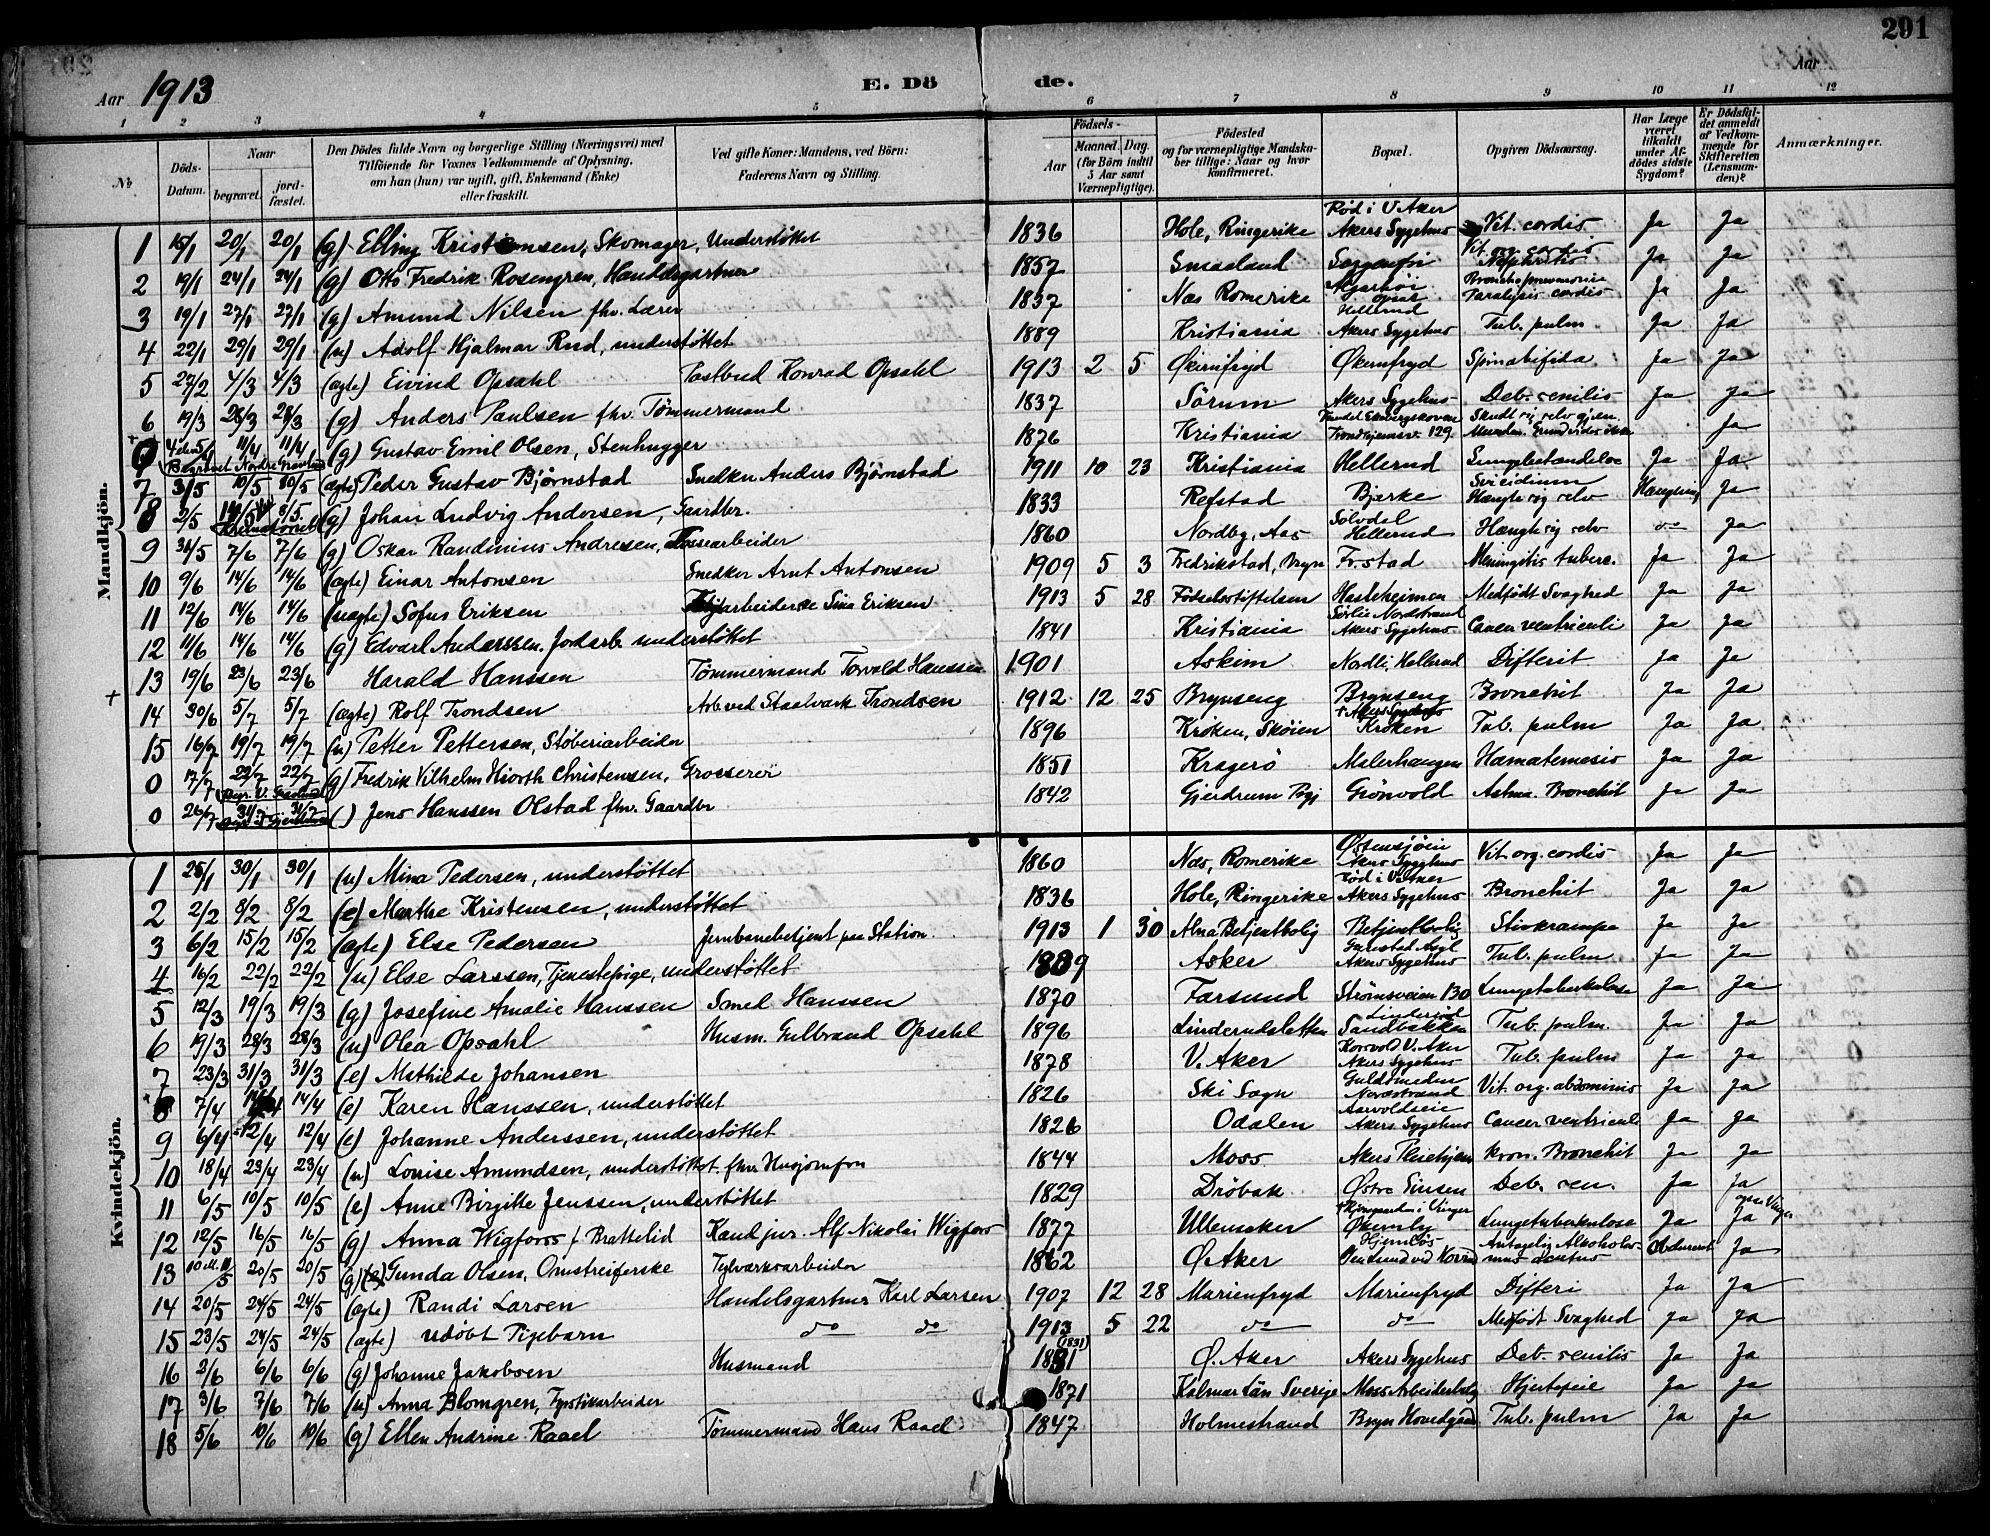 291
Aar 1913 E. Dö de. Aar
1 2 3 4 5 6 7 8 9 10 11 12
№ Döds-Datum. Naar begravet. jord-fæstet. Den Dödes fulde Navn og borgerlige Stilling (Næringsvei) med Tilföiende for Voxnes Vedkommende af Oplysning, om han (hun) var ugift, gift, Enkemand (Enke) eller fraskilt. Ved gifte Koner: Mandens, ved Börn: Faderens Navn og Stilling. Födsels- Aar Maaned. Dag. (for Börn indtil 5 Aar samt Værnepligtige). Födested og for værnepligtige Mandskaber tillige: Naar og hvor konfirmeret. Bopæl. Opgiven Dödsaarsag. Har Læge været tilkaldt under Afdödes sidste Sygdom? Er Dödsfaldet anmeldt af Vedkommende for Skifteretten (Lensmanden)? Anmærkninger.
Mandkjön.
1 15/1 20/1 20/1 (g) Elling Kristiansen, Skomager, Understøttet 1836 Hole, Ringerike Rød i V. Aker Akers Sygehus Vit. cordis Ja Ja
2 19/1 24/1 24/1 (g) Otto Fredrik Rosengren, Handelsgartner 1857 Smaaland Sorgenfri Vit. org. cordis Nephritis Ja Ja
3 19/1 27/1 27/1 (g) Amund Nilsen fhv. Lærer 1837 Næs Romerike Bronchopneumonie Paralysis cordis Ja Ja
4 22/1 29/1 29/1 (u) Adolf Hjalmar Rud, understøttet 1889 Kristiania Hellerud Akers Sygehus Tub. pulm. Ja Ja
5 27/2 4/3 4/3 (ægte) Eivind Opsahl Postbud Konrad Opsahl 1913 2 5 Økernfryd Økernfryd Spinabifida Ja Ja
6 19/3 28/3 28/3 (g) Anders Paulsen fhv. Tømmermand 1837 Sørum Akers Sygehus Deb. senilis Ja Ja
0 11/4 11/4 (g) Gustav Emil Olsen, Stenhugger 1876 Kristiania Fundet Ekebergskoven Trondhjemsv. 129 Skudt sig selv gjen. Munden. Ja
Begravet Nordre Gravlund
7 3/5 10/5 10/5 (ægte) Peder Gustav Bjørnstad Snedker Anders Bjørnstad 1911 10 23 Kristiania Hellerud Lungebetændelse Ja Ja
8 2/5 8/5. (g) Johan Ludvig Andersen, Gaardbr. 1833 Refstad Bjerke Suicidium Hængte sig selv Hængning Ja
9 31/5 7/6 7/6 (g) Oskar Randinius Andresen, Løsearbeider 1860 Nordby, Aas Solvdal Hellerud Hængte sig selv do Ja
10 9/6 14/6 14/6 (ægte) Einar Antonsen Snedker Arnt Antonsen 1909 5 3 Fredrikstad, Bryn Frstad Meningitis tuberc. Ja Ja
11 12/6 14/6 14/6 (uægte) Sofus Eriksen arbeiderske Sina Eriksen 1913 5 28 Fødselsstiftelsen Hasleheimen Medfødt Svaghed Ja Ja
12 11/6 14/6 14/6 (g) Edvart Anderssen. Jodarb. understøttet 1841 Kristiania Sørlie Nordstrand Akers Sygehus Cancer ventriculi Ja Ja
13 19/6 23/6 23/6 Harald Hanssen Tømmermand Torvald Hanssen 1901 Askim Nordli, Hellerud Difterit Ja Ja
+ 14 30/6 5/7 5/7 (ægte) Rolf Trondsen Arb. ved Staalværk Trondsen 1912 12 25 Brynseng Brynseng Bronchit Ja Ja
15 16/7 19/7 19/7 (u) Petter Pettersen, Støberiarbeider 1896 Kroken, Skøien + Akers Sygehus Kroken Tub. pulm Ja Ja
0 17/7 22/7 22/7 (g) Fredrik Vilhelm Hiorth Christensen, Grosserer 1851 Kragerø Malerhaugen Hæmatemesis Ja Ja
0 26/7 31/7 31/7 () Jens Hanssen Olstad fhv. Gaardbr 1842 Gjerdrum Pgj Grönvold Astma. Bronchit Ja Ja
Kvindekjön.
1 25/1 30/1 30/1 (u) Mina Pedersen, understøttet 1860 Næs, Romerike Østensjøen Akers Sygehus Vit. org. cordis Ja Ja
2 2/2 8/2 8/2 (e) Marthe Kristensen, understøttet 1836 Hole, Ringerike Rød i V. Aker Akers Sygehus Bronchit Ja Ja
3 6/2 15/2 15/2 (ægte) Else Pedersen Jernbanebetjent paa Station 1913 1 30 Alna Betjentbolig Betjentbolig Stivkrampe Ja Ja
4 16/2 22/2 22/2 (u) Else Larssen, Tjenestepige, understøttet 1889 Asker Akers Sygehus Tub. pulm Ja Ja
5 12/3 19/3 19/3 (g) Josefine Amalie Hanssen Smed Hanssen 1870 Farsund Strømsveien 130 Lungetuberkulose Ja Ja
6 19/3 28/3 28/3 (u) Olea Opsahl Husm. Gulbrand Opsahl 1896 Linderudsletten Linderud Sandbakken Tub. pulm. Ja Ja
7 23/3 31/3 31/3 (e) Mathilde Johansen 1878 V. Aker Korsvold V. Aker Akers Sygehus Tub. pulm Ja Ja
8 7/4 14/4 14/4 (e) Karen Hanssen, understøttet 1826 Ski Sogn Guldsmeden Nordstrand Vit. org. abdominis Ja Ja
9 6/4 12/4 12/4 (e) Johanne Anderssen, understøttet 1826 Odalen Aarvoldseie Akers Sygehus Cancer ventriculi Ja Ja
10 18/4 23/4 23/4 (u) Louise Amundsen, understøttet fhv. Husjomfru 1844 Moss Akers Pleiehjem kron. Bronchit Ja Ja
11 6/5 10/5 10/5 (e) Anne Birgitte Jenssen, understøttet 1829 Drøbak Østre Sinsen Deb. sen. Ja Ja
12 12/5 16/5 16/5 (g) Anna Wigforss f. Brattelid Kand jur. Alf Nikolai Wigforss 1877 Ullensaker Økernly Lungetuberkulose Ja Ja
13 20/5 20/5 (g) Gunda Olsen, Omstreiferske Teglværksarbeider 1862 Ø. Aker Hjemløs Antagelig Alkoholismus Obduceret Ja
14 20/5 24/5 24/5 (ægte) Randi Larsen Handelsgartner Karl Larsen 1907 12 28 Marienfryd Marienfryd Difteri Ja Ja
15 23/5 24/5 24/5 (ægte) udøbt Pigebarn do do 1913 5 22 do do Medfødt Svaghed Ja Ja
16 2/6 6/6 6/6 (g) Johanne Jakobsen Husmand (1831) 1831 Ø. Aker Akers Sygehus Deb. senilis Ja Ja
17 3/6 7/6 7/6 (u) Anna Blomgren, Fyrstikarbeider 1871 Kalmar län Sverige Moss Arbeiderbolig Hjertefeil Ja Ja
18 5/6 10/6 10/6 (g) Ellen Andrine Raael Tømmermand Hans Raael 1847 Holmestrand Bryn Hovedgaard Tub. pulm Ja Ja